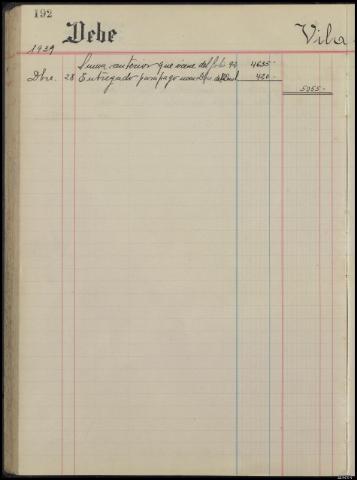 192
Debe Vila
1939
Suma anterior que viene del folio 4635.-
Dbre. 28 Entregado para pago 420.-
5055.-